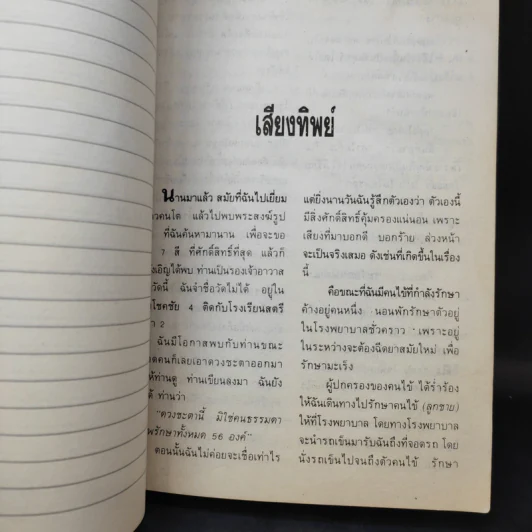 เสียงทิพย์
นานมาแล้ว สมัยที่ฉันไปเยี่ยม
แล้วไปพบพระสงฆ์รูป
ที่ฉันค้นหามานาน เพื่อจะขอ
7 สี ที่ศักดิ์สิทธิ์ที่สุด แล้วก็
ท่านเป็นรองเจ้าอาวาส
ฉันจำชื่อวัดไม่ได้ อยู่ใน
โชคชัย 4 ติดกับโรงเรียนสตรี
2
ฉันมีโอกาสพบกับท่านขณะ
ท่านเขียนลงมา ฉันยัง
ท่านว่า
"ดวงชะตานี้ มิใช่คนธรรมดา
56 องค์"
ตอนนั้นฉันไม่ค่อยจะเชื่อเท่าไร
แต่ยิ่งนานวันฉันรู้สึกตัวเองว่า ตัวเองนี้
มีสิ่งศักดิ์สิทธิ์คุ้มครองแน่นอน เพราะ
เสียงที่มาบอกดี บอกร้าย ล่วงหน้า
จะเป็นจริงเสมอ ดังเช่นที่เกิดขึ้นในเรื่อง
นี้
คือขณะที่ฉันมีคนไข้ที่กำลังรักษา
ค้างอยู่คนหนึ่ง นอนพักรักษาตัวอยู่
ในโรงพยาบาลชั่วคราว เพราะอยู่
ในระหว่างจะต้องฉีดยาสมัยใหม่ เพื่อ
รักษามะเร็ง
ผู้ปกครองของคนไข้ ได้ร่ำร้อง
ให้ฉันเดินทางไปรักษาคนไข้ (ลูกชาย)
ให้ที่โรงพยาบาล โดยทางโรงพยาบาล
จะนำรถเข็นมารับฉันถึงที่จอดรถ โดย
นั่งรถเข็นไปจนถึงตัวคนไข้ รักษา